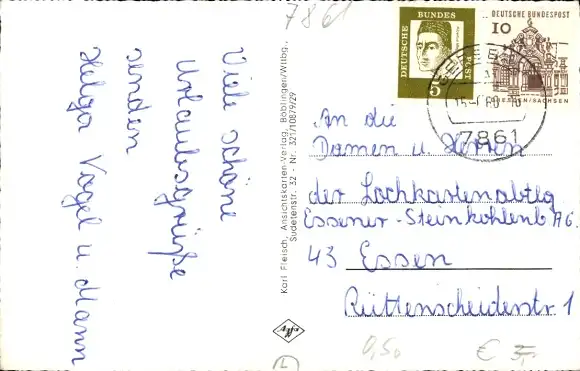 7861
Viele schöne
Urlaubsgrüße
senden
Helga Vogel u. Mann
Karl Fleisch, Ansichtskarten-Verlag, Böblingen/Wttbg.,
Sudetenstr. 32 - Nr. 321/10879/29
DEUTSCHE BUNDESPOST
5
DEUTSCHE BUNDESPOST
10
SACHSEN
7861
An die
Damen u. Herren
der Lochkartenabtlg
Essener-Steinkohlenb AG.
43 Essen
Rüttenscheiderstr 1
0,50
€ 3,-
L